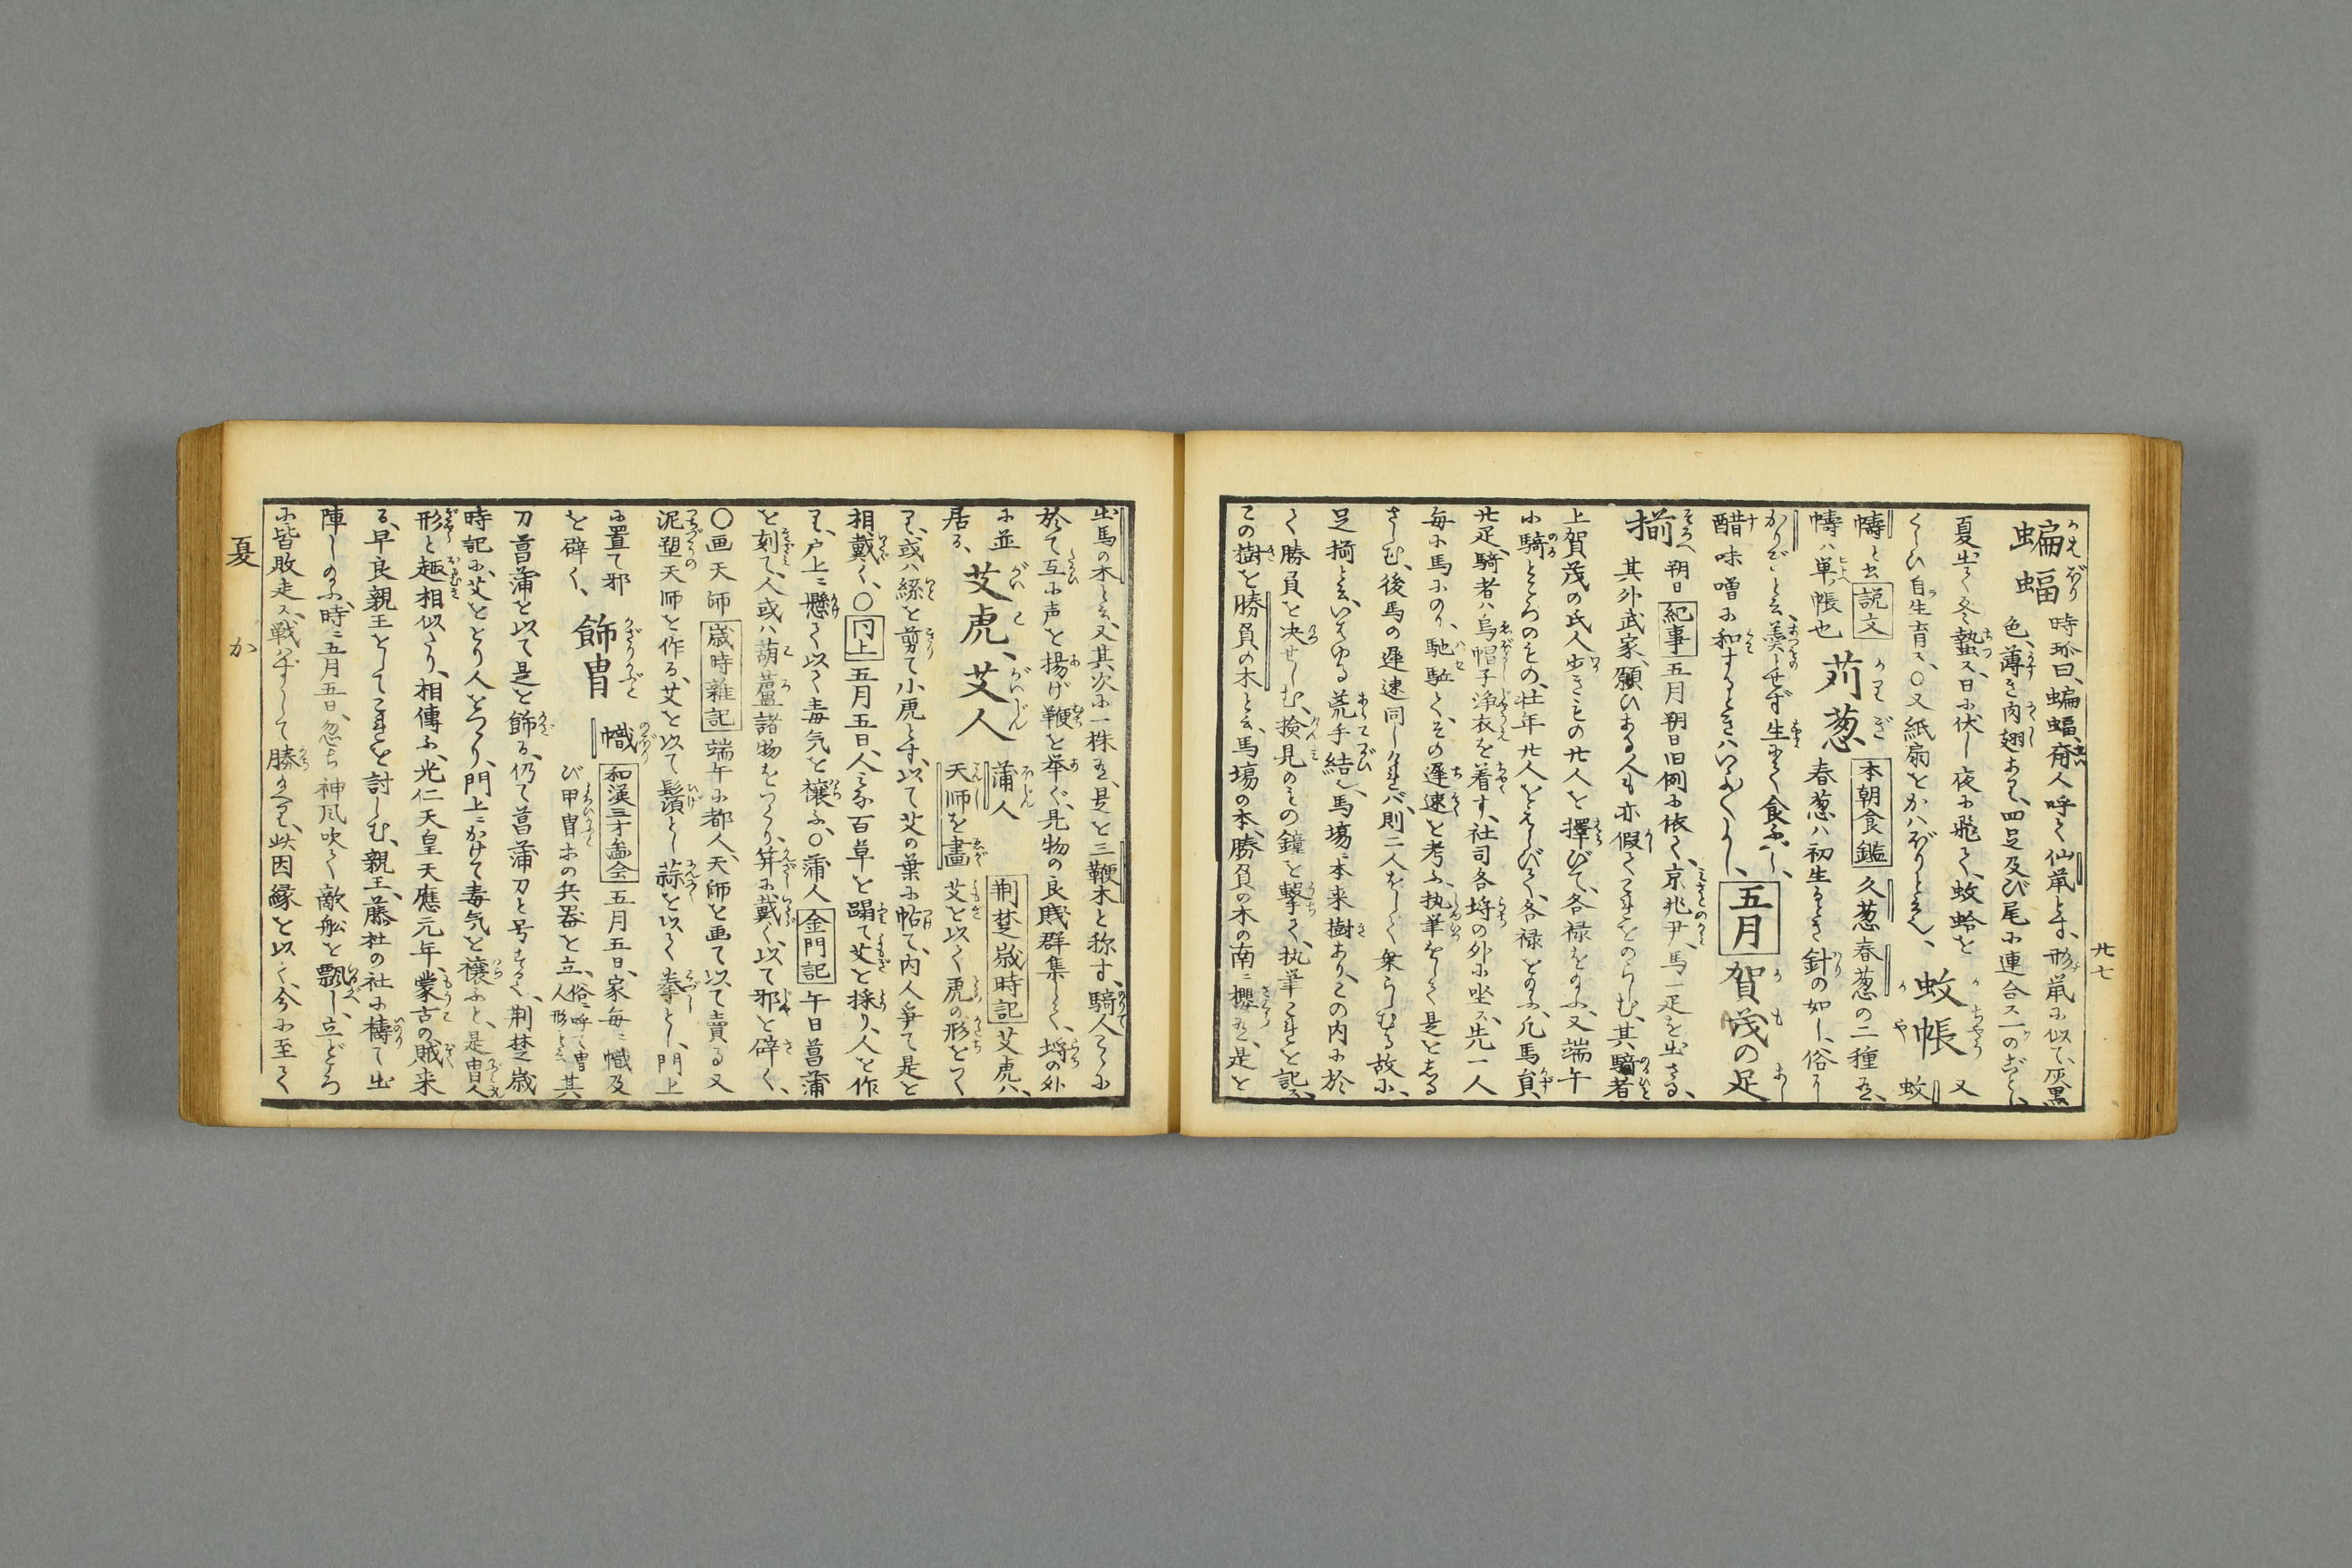 蝙蝠 時珍曰、蝙蝠、齊人呼て仙鼠とす、形鼠に似て、灰黒
色、薄き肉翅あり、四足及び尾に連合ス一のごとし、
夏出て冬蟄ス、日に伏し夜に飛て、蚊蚋を
くらひ自生育ス、〇又紙扇をかハぼりといへり、 蚊帳 又 蚊
幮と書 説文
幮ハ単帳也 苅葱 本朝食鑑 久葱 春葱の二種有、
春葱ハ初生るとき針の如し、俗に
かりぎといふ、羹とせず生にて食ふべし、
醋味噌に和するときハいよいよよし、 五月 賀茂の足
揃 朔日 紀事 五月朔日旧例に依て、京兆尹、馬一疋を出さる、
其外武家、願ひある人も亦假てこれをのらしむ、其騎者
上賀茂の氏人歩きもの廿人を擇びて、各禄を、又端午
に騎ところのもの、壮年廿人をえらびて、各禄を、凡馬員
廿疋、騎者ハ烏帽子浄衣を着す、社司各埒の外に坐ス、先一人
毎に馬にのり、馳駈て、その遅速を考ふ、执筆をして是をしる
さしむ、後馬の遅速同しけれバ、則二人をして乗らしむる故に、
足揃といふ、いはゆる荒手結ひ、馬場に本来樹あり、この内に於
て勝負を决せしむ、撿見のもの鐘を撃て、执筆これを記ス、
この樹を勝負の木といふ、馬場の本、勝負の木の南に櫻有、是を
廿七
出馬の木といふ、又其次に一株有、是を三鞭木と称す、騎人こゝに
於て互に声を揚げ鞭を挙ぐ、見物の良賎群集して、埒の外
に並
居る、 艾虎、艾人 蒲人
天师を畫 荆楚嵗時記 艾虎ハ、
艾を以て虎の形をつく
り、或ハ綵を剪て小虎とす、以て艾の葉に帖て、内人争て是を
相戴く、〇同上 五月五日、人みな百草を蹋て艾を採り、人を作
り、戸上に懸て以て毒気を禳ふ、〇蒲人 金門記 午日菖蒲
を刻て、人或ハ葫蘆諸物をつくり、笄に戴く、以て邪を辟く、
〇画天師 嵗時雑記 端午に都人、天師を画て以て賣る又
泥塑天师を作る、艾を以て鬚とし蒜を以て拳とし、門上
に置て邪
を辟く、 飾冑 幟 和漢三才圖会 五月五日、家毎に幟及
び甲冑等の兵器を立、俗に呼て冑人形といふ 其
刀菖蒲を以て是を飾る、仍て菖蒲刀と号すく、荆楚嵗
時記に、艾をとり人をつくり、門上にかけて毒気を禳ふと、是冑人
形と趣相似たり、相傳ふ、光仁天皇天應元年、蒙古の賊来
る、早良親王をしてこれを討しむ、親王、藤杜の社に祷て出
陣しのふ、時に五月五日、忽ち神風吹て敵舩を飄し、立どころ
に皆敗走ス、戦ハずして勝給へり、此因縁を以て、今に至て
夏 か